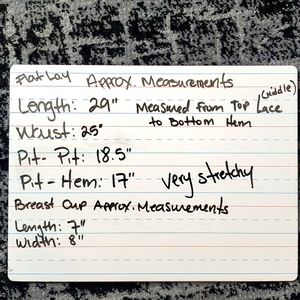 Flat Lay Approx. Measurements
Length: 29" Measured From Top Lace (Middle)
to Bottom Hem
Waist: 25"
Pit-Pit: 18.5"
Pit-Hem: 17" very stretchy
Breast Cup Approx. Measurements
Length: 7"
Width: 8"